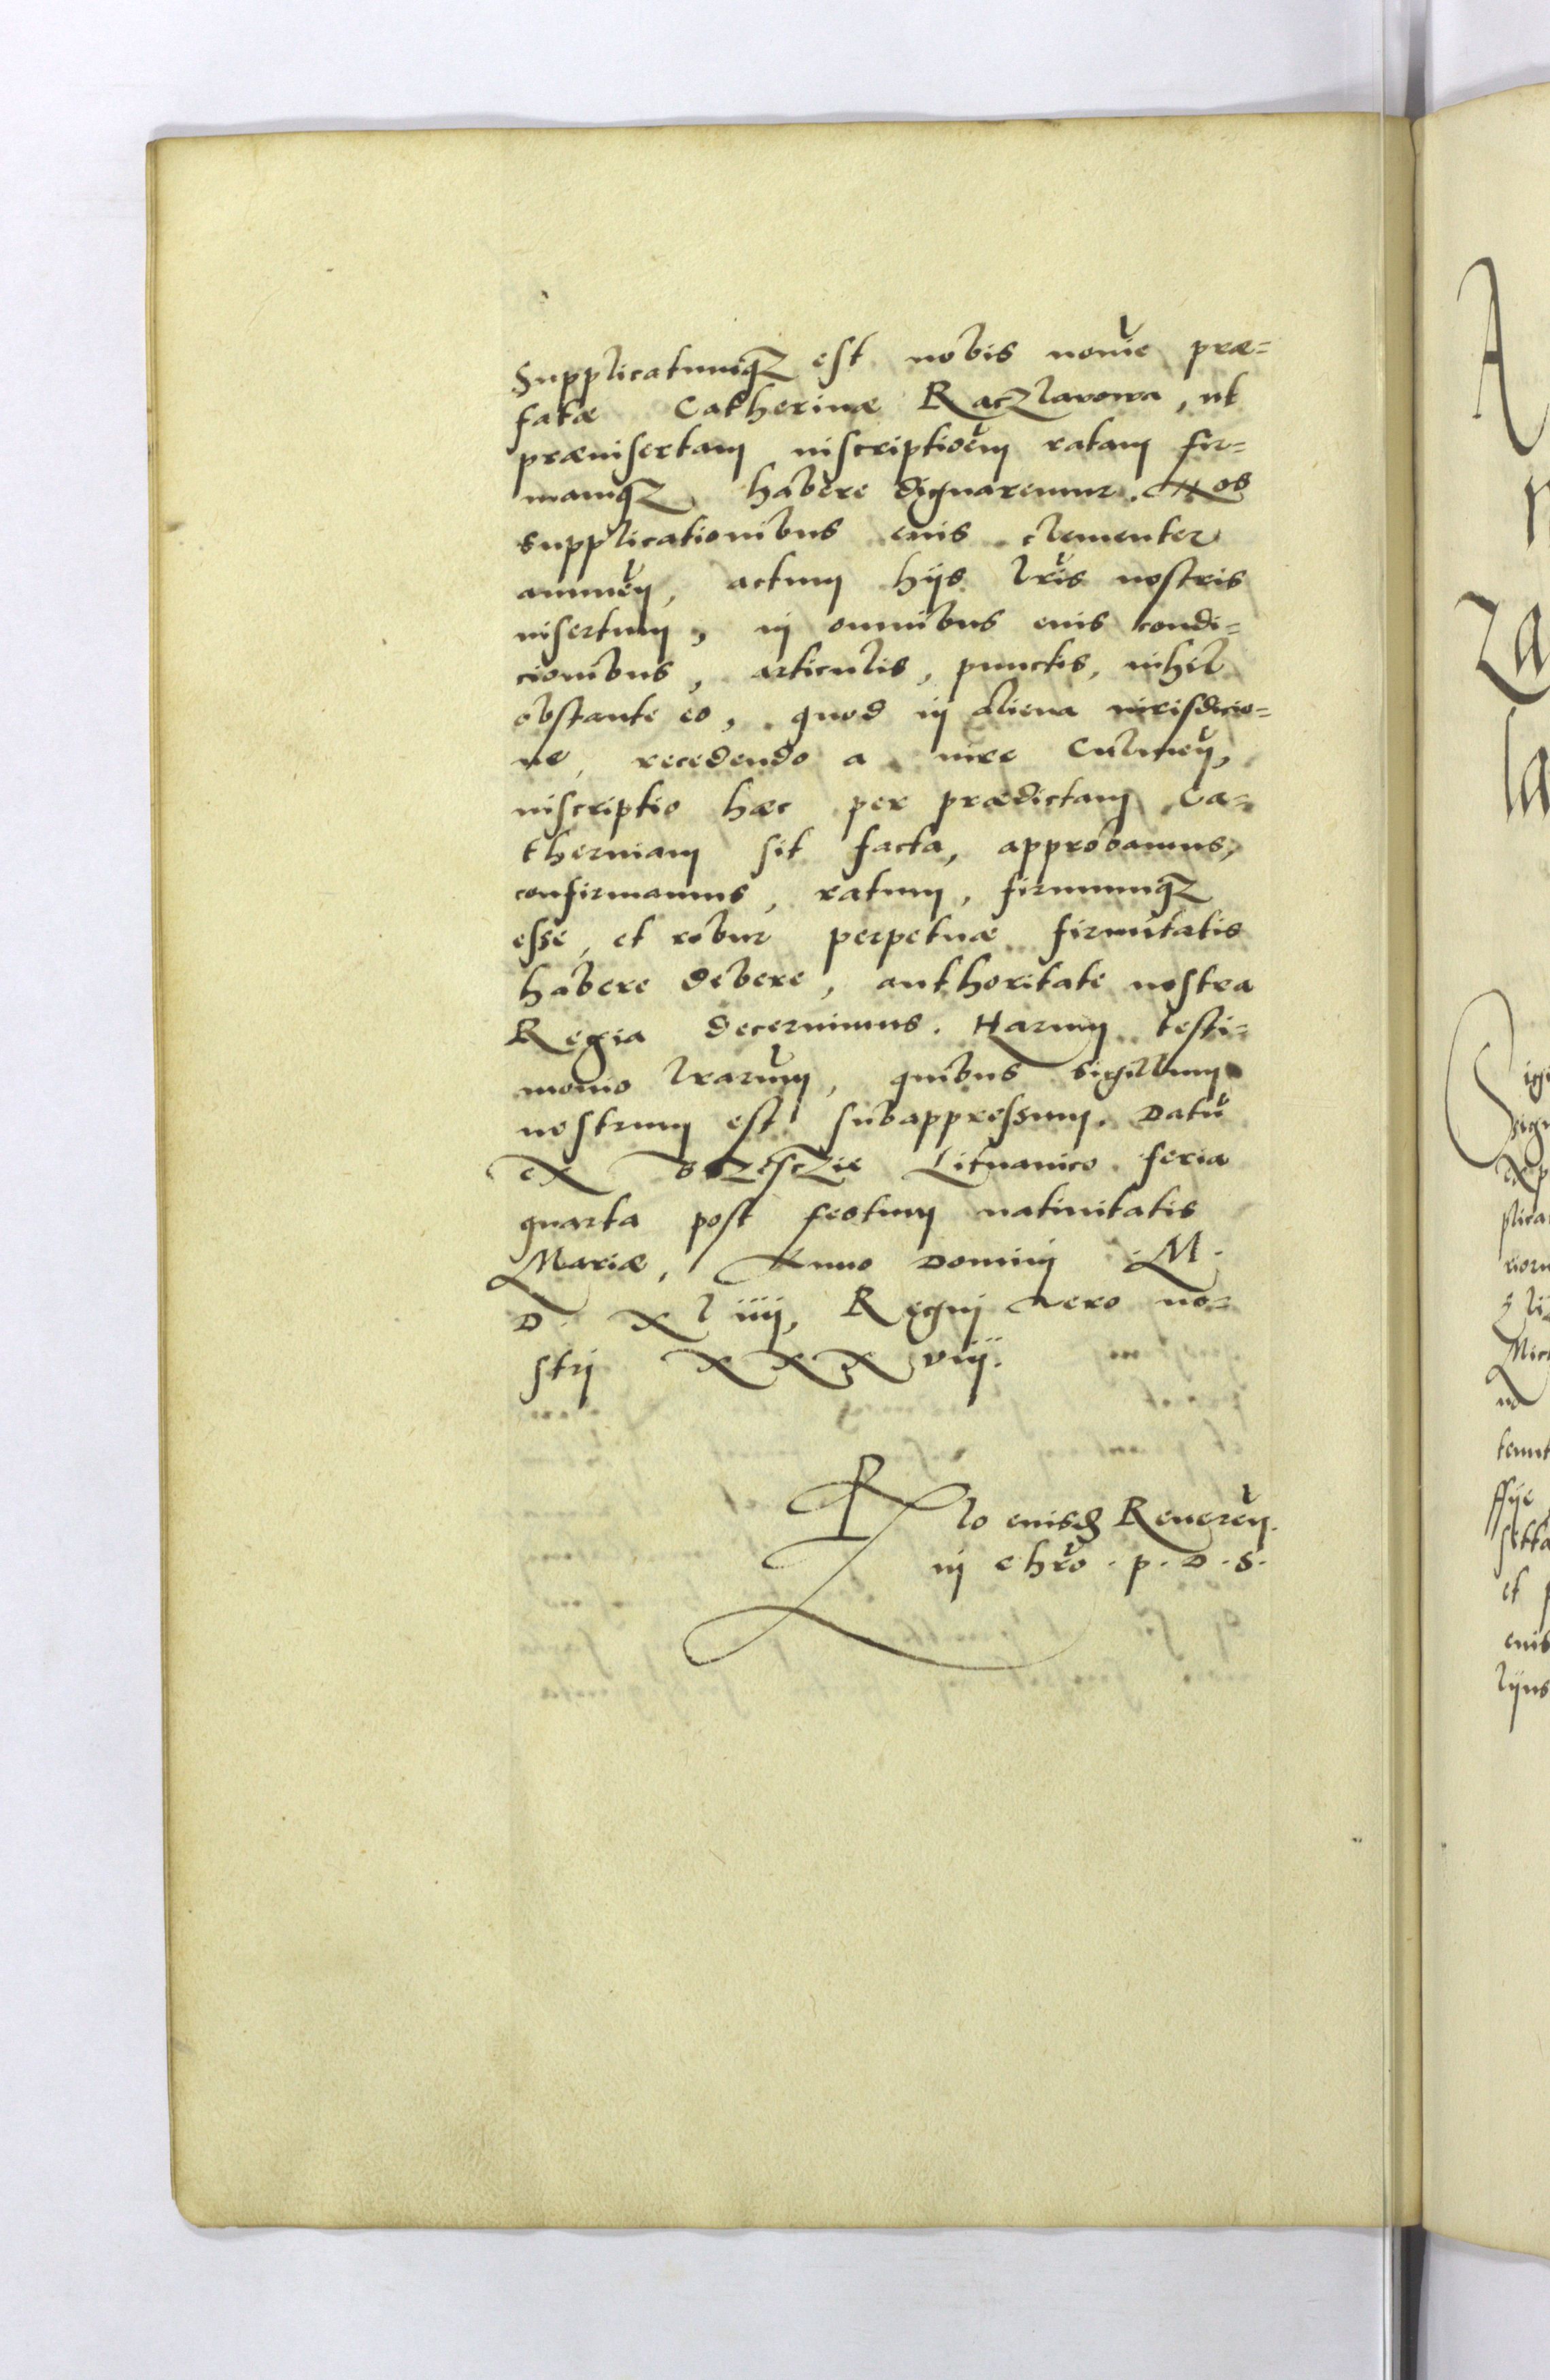 Supplicatumq₃ est nobis noīe præ=
fatæ Catherinæ Raczlavowa, ut
præinsertam inscriptioēm ratam fir=
mamq₃ habere dignaremur. Nos
supplicationibus eius clementer
annueñ, actum hijs lr̃is nostris
insertum, in omnibus eius condi=
cionibus, articulis, punctis, nihil
obstante eo, quod in aliena iurisdicio=
ne, recedendo a iure Culmeñ,
inscriptio hæc per prædictam Ca=
therinam sit facta, approbamus,
confirmamus, ratum, firmumq₃
esse, et robur perpetuæ firmitatis
habere debere, authoritate nostra
Regia decernimus. Harum testi=
monio lr̃arum, quibus sigillum
nostrum est subappressum. Datū
ex Brzesczie Lituanico feria
quarta post festum nativitatis
Mariæ, Anno Domini .M.
D. xliiij, Regni vero no=
stri xxxviij.
Rlo eiusd Reuereñ.
in chr̃o . p . D . S .
A
za
la